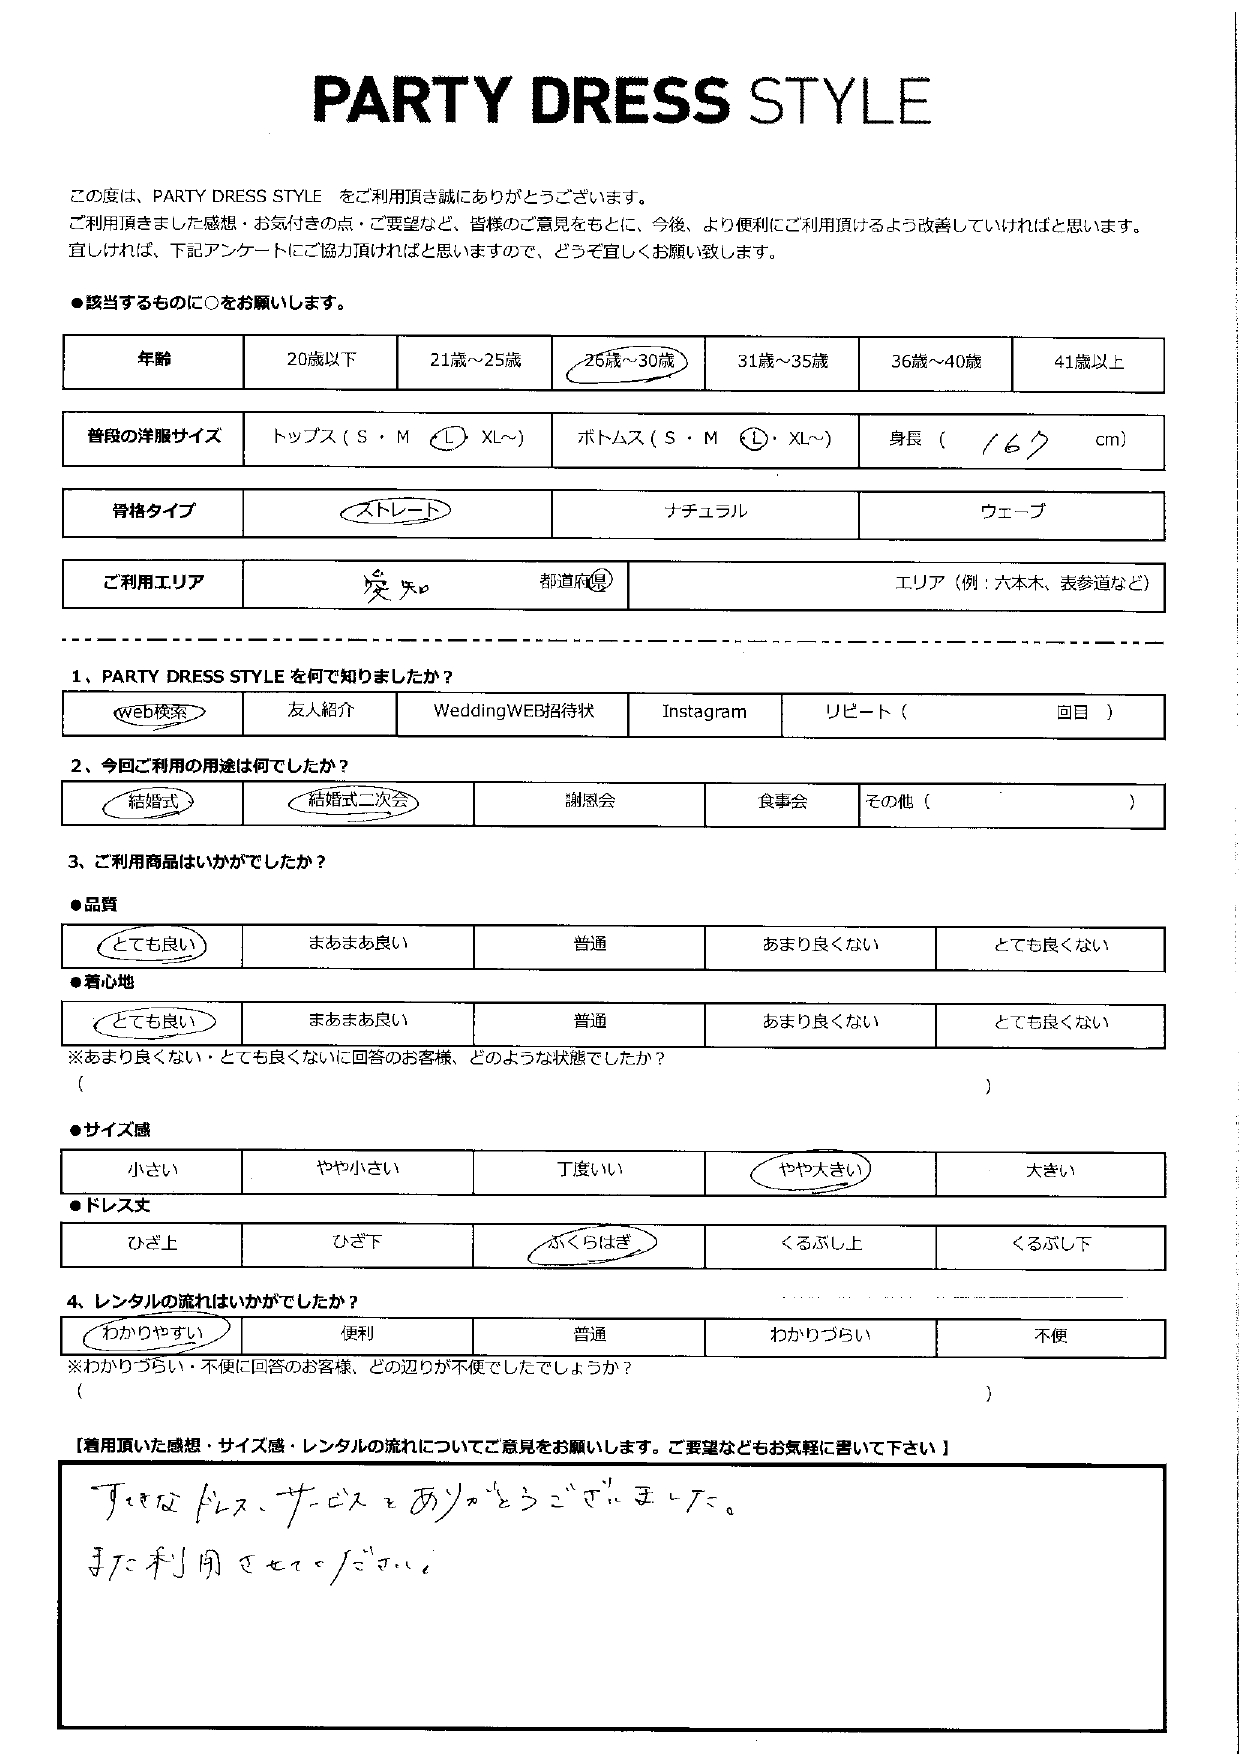 PARTY DRESS STYLE
この度は、PARTY DRESS STYLE をご利用頂き誠にありがとうございます。
ご利用頂きました感想・お気付きの点・ご要望など、皆様のご意見をもとに、今後、より便利にご利用頂けるよう改善していければと思います。
宜しければ、下記アンケートにご協力頂ければと思いますので、どうぞ宜しくお願い致します。
●該当するものに○をお願いします。
年齢 20歳以下 21歳～25歳 26歳～30歳 31歳～35歳 36歳～40歳 41歳以上
普段の洋服サイズ トップス ( S ・ M L XL～) ボトムス ( S ・ M L・ XL～) 身長 ( 167 cm)
骨格タイプ ストレート ナチュラル ウェーブ
ご利用エリア 愛知 都道府県 エリア（例：六本木、表参道など）
1、PARTY DRESS STYLE を何で知りましたか？
web検索 友人紹介 WeddingWEB招待状 Instagram リピート（ 回目 ）
2、今回ご利用の用途は何でしたか？
結婚式 結婚式二次会 謝恩会 食事会 その他（ ）
3、ご利用商品はいかがでしたか？
●品質
とても良い まあまあ良い 普通 あまり良くない とても良くない
●着心地
とても良い まあまあ良い 普通 あまり良くない とても良くない
※あまり良くない・とても良くないに回答のお客様、どのような状態でしたか？
（ ）
●サイズ感
小さい やや小さい 丁度いい やや大きい 大きい
●ドレス丈
ひざ上 ひざ下 ふくらはぎ くるぶし上 くるぶし下
4、レンタルの流れはいかがでしたか？
わかりやすい 便利 普通 わかりづらい 不便
※わかりづらい・不便に回答のお客様、どの辺りが不便でしたでしょうか？
（ ）
【着用頂いた感想・サイズ感・レンタルの流れについてご意見をお願いします。ご要望などもお気軽に書いて下さい】
すてきなドレス、サービスをありがとうございました。
また利用させてください。